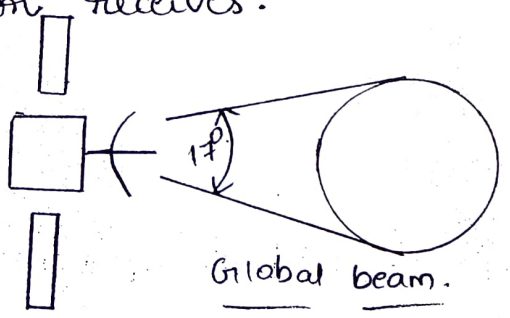 receives.
17°
Global beam.